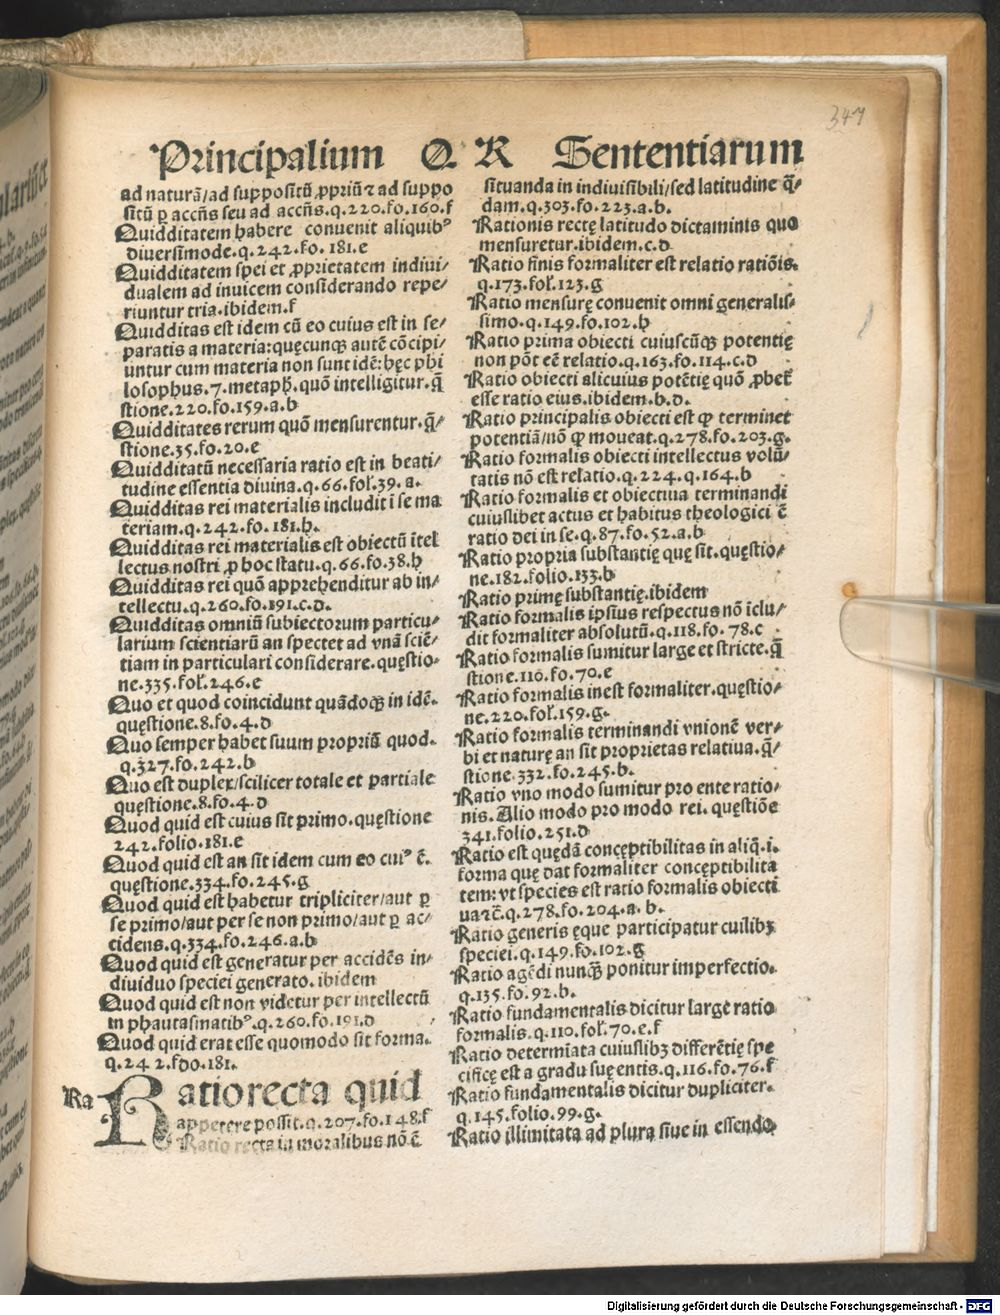 347
Principalium Q R Sententiarum
ad naturā/ad suppositū ꝓpriū ⁊ ad suppo
sitū ꝑ accn̄s seu ad accn̄s.q.220.fo.160.f
Quidditatem habere conuenit aliquibꝰ
diuersimode.q.242.fo.181.e
Quidditatem spei et ꝓprietatem indiui/
dualem ad inuicem considerando repe/
riuntur tria.ibidem.f
Quidditas est idem cū eo cuius est in se/
paratis a materia:quęcunqꝫ autē cōcipi/
untur cum materia non sunt idē:hęc phi
losophus.7.metaph̄.quō intelligitur.q̄
stione.220.fo.159.a.b
Quidditates rerum quō mensurentur.q̄/
stione.35.fo.20.e
Quidditatū necessaria ratio est in beati/
tudine essentia diuina.q.66.fol̄.39.a.
Quidditas rei materialis includit ī se ma
teriam.q.242.fo.181.h.
Quidditas rei materialis est obiectū ītel
lectus nostri ꝓ hoc statu.q.66.fo.38.h
Quidditas rei quō apprehenditur ab in/
tellectu.q.260.fo.191.c.d.
Quidditas omniū subiectorum particu/
larium scientiarū an spectet ad vnā sciē/
tiam in particulari considerare.quęstio/
ne.335.fol̄.246.e
Quo et quod coincidunt quādoqꝫ in idē.
quęstione.8.fo.4.d
Quo semper habet suum propriū quod.
q.327.fo.242.b
Quo est duplex/scilicet totale et partiale
quęstione.8.fo.4.d
Quod quid est cuius sit primo.quęstione
242.folio.181.e
Quod quid est an sit idem cum eo cuiꝰ ē.
quęstione.334.fo.245.g
Quod quid est habetur tripliciter/aut ꝑ
se primo/aut per se non primo/aut ꝑ ac/
cidens.q.334.fo.246.a.b
Quod quid est generatur per accidēs in/
diuiduo speciei generato.ibidem
Quod quid est non videtur per intellectū
in phantasmatibꝰ.q.260.fo.191.d
Quod quid erat esse quomodo sit forma.
q.242.fdo.181.
Ra Ratio recta quid
appetere possit.q.207.fo.148.f
Ratio recta in moralibus nō ē
situanda in indiuisibili/sed latitudine q̄/
dam.q.303.fo.223.a.b.
Rationis rectę latitudo dictaminis quo
mensuretur.ibidem.c.d
Ratio finis formaliter est relatio ratiōis.
q.173.fol.123.g
Ratio mensurę conuenit omni generalis/
simo.q.149.fo.102.h
Ratio prima obiecti cuiuscūqꝫ potentię
non pōt eē relatio.q.163.fo.114.c.d
Ratio obiecti alicuius potētię quō ꝓbet̄
esse ratio eius.ibidem.b.d.
Ratio principalis obiecti est ꝙ terminet
potentiā/nō ꝙ moueat.q.278.fo.203.g.
Ratio formalis obiecti intellectus volū/
tatis nō est relatio.q.224.q.164.b
Ratio formalis et obiectiua terminandi
cuiuslibet actus et habitus theologici ē
ratio dei in se.q.87.fo.52.a.b
Ratio propria substantię quę sit.quęstio/
ne.182.folio.133.b
Ratio primę substantię.ibidem
Ratio formalis ipsius respectus nō īclu/
dit formaliter absolutū.q.118.fo.78.c
Ratio formalis sumitur large et stricte.q̄
stione.110.fo.70.e
Ratio formalis inest formaliter.quęstio/
ne.220.fol̄.159.g.
Ratio formalis terminandi vnionē ver/
bi et naturę an sit proprietas relatiua.q̄/
stione.332.fo.245.b.
Ratio vno modo sumitur pro ente ratio/
nis.Alio modo pro modo rei.quęstiōe
341.folio.251.d
Ratio est quędā concęptibilitas in aliq̄.i.
forma quę dat formaliter concęptibilita
tem:vt species est ratio formalis obiecti
ua ⁊c̄.q.278.fo.204.a.b.
Ratio generis ęque participatur cuilibꝫ
speciei.q.149.fo.102.g
Ratio agēdi nunqꝫ ponitur imperfectio.
q.135.fo.92.b.
Ratio fundamentalis dicitur large ratio
formalis.q.110.fol̄.70.e.f
Ratio determīata cuiuslibꝫ differētię spe
cificę est a gradu suę entis.q.116.fo.76.f
Ratio fundamentalis dicitur dupliciter.
q.145.folio.99.g.
Ratio illimitata ad plura siue in essendo
Digitalisierung gefördert durch die Deutsche Forschungsgemeinschaft - DFG